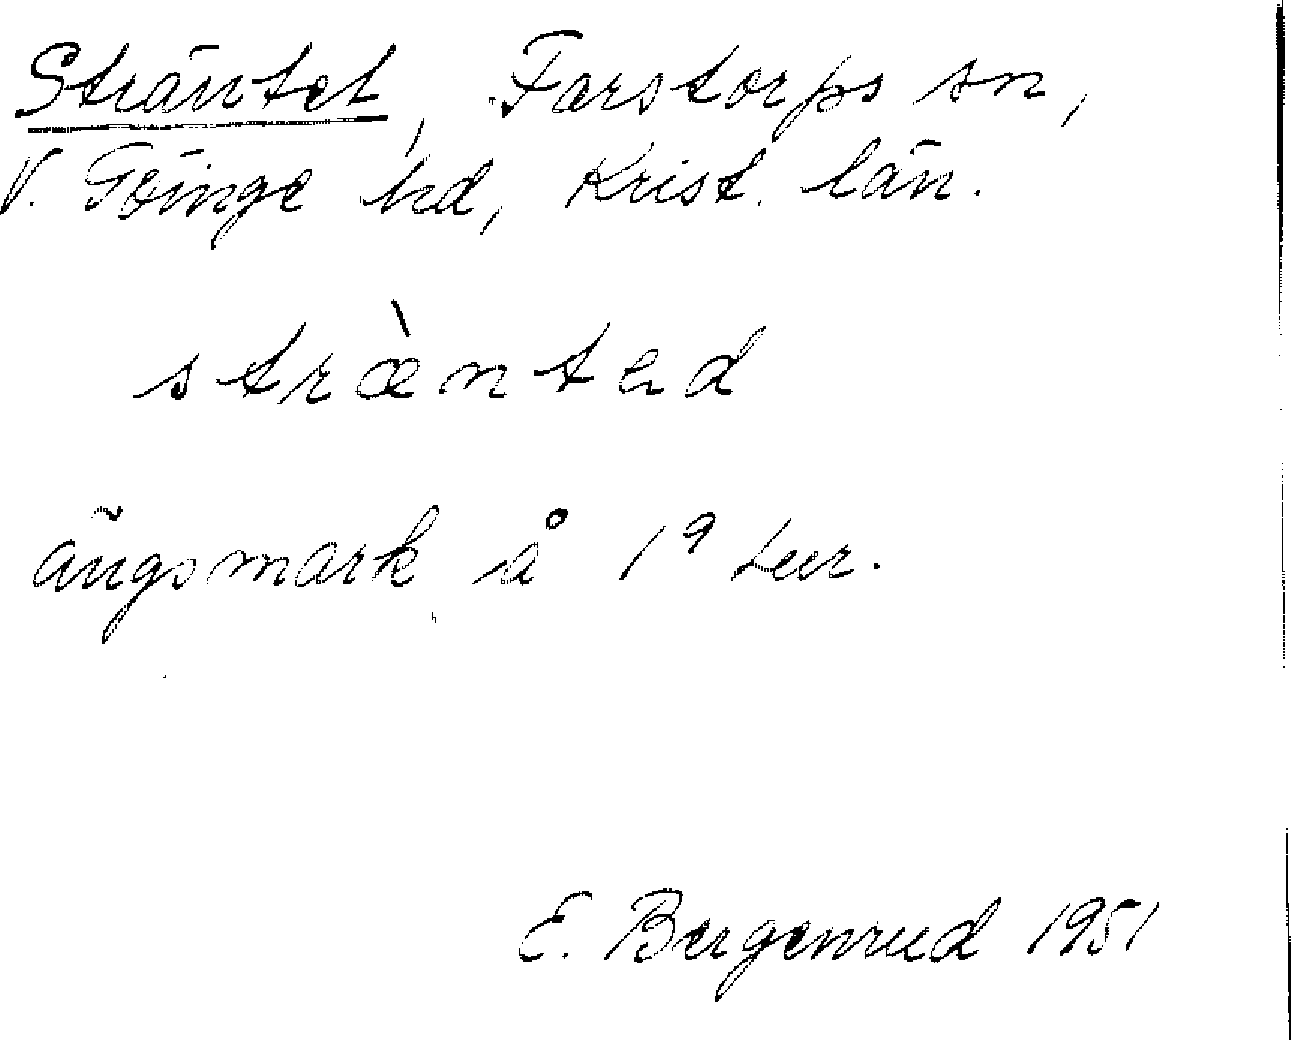 Sträntet, Farstorps sn,
V. Göinge hd, Krist. län.
stràntəd
ängsmark å 1⁹ Lur.
E. Bergenrud 1951